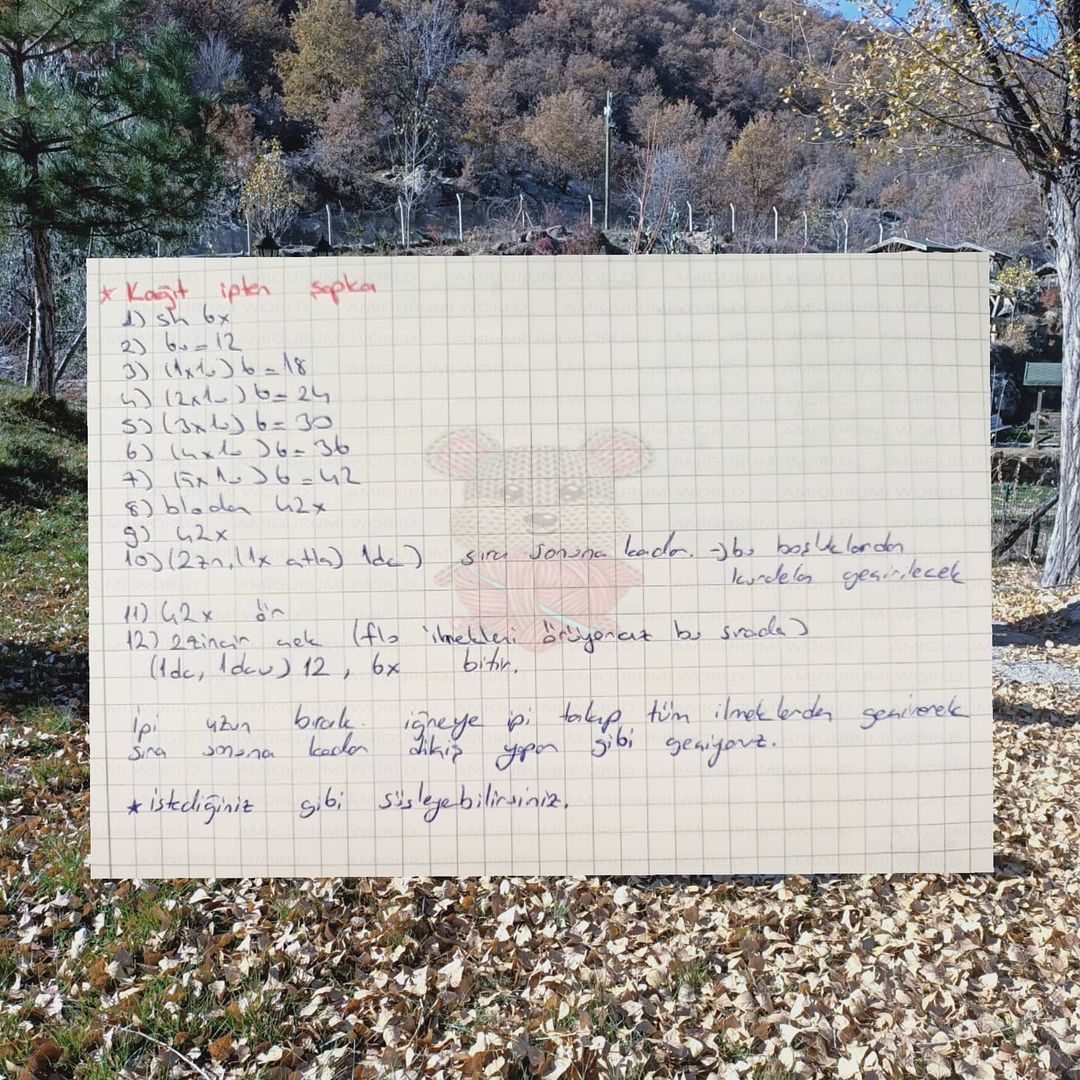 * Kağıt ipten şapka
1) sh 6x
2) 6v = 12
3) (1x1v) 6 = 18
4) (2x1v) 6 = 24
5) (3x1v) 6 = 30
6) (4x1v) 6 = 36
7) (5x1v) 6 = 42
8) bloдan 42x
9) 42x
10) (2zn, (1x atla) 1dc) sıra sonuna kadar. → bu boşluklardan
kurdela geçirilecek
11) 42x ör
12) 2 zincir çek (flo ilmekleri örüyoruz bu sırada)
(1dc, 1dcv) 12, 6x bitir.
İpi uzun bırak. iğneye ipi takıp tüm ilmeklerden geçirerek
sıra sonuna kadar dikiş yapar gibi geçiyoruz.
* istediğiniz gibi süsleyebilirsiniz.
AMIGURUMI WORLD